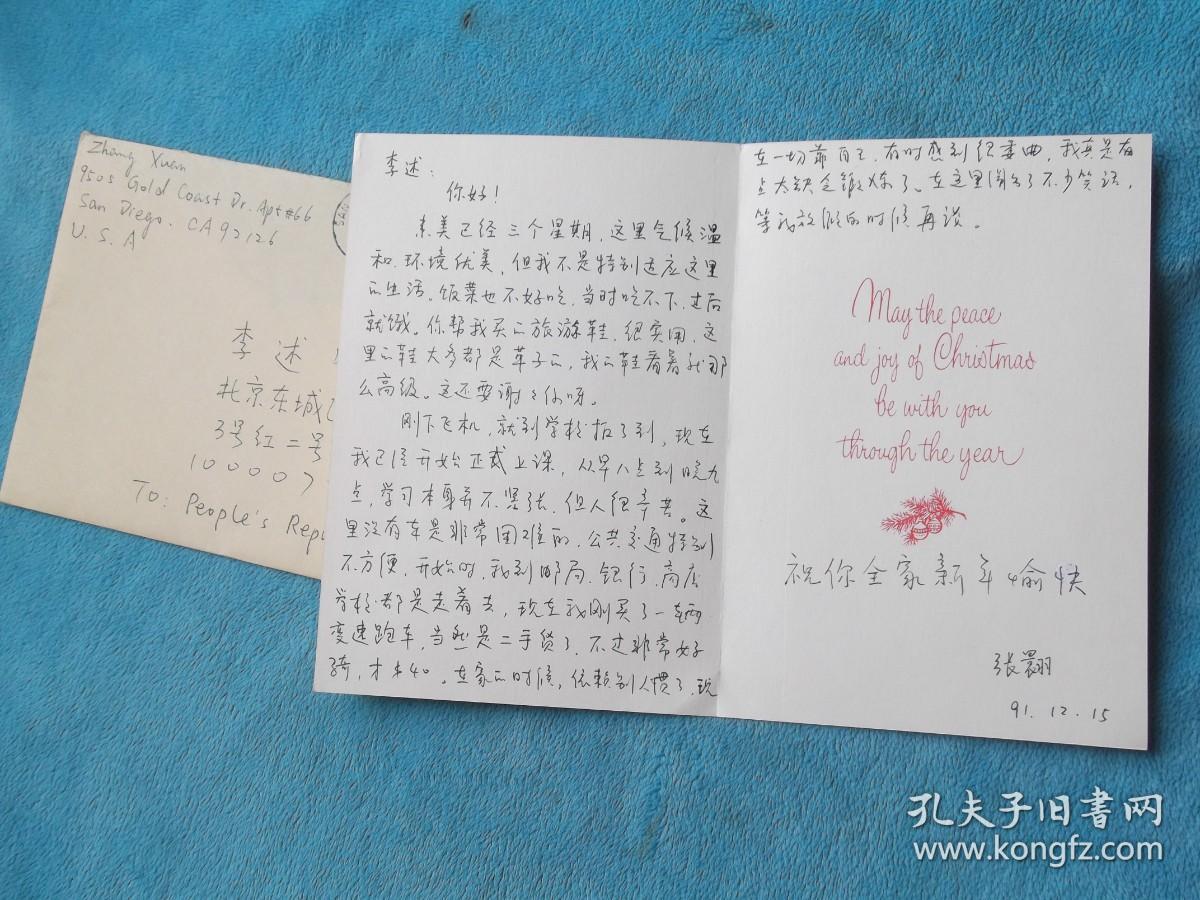 Zhang Xuan
9505 Gold Coast Dr. Apt #66
San Diego. CA 92126
U. S. A
李 述
北京东城
3号红二号
100007
To: People's Repu
李述：
你好！
来美已经三个星期，这里气候温
和，环境优美，但我不是特别适应这里
的生活。饭菜也不好吃，当时吃不下，过后
就饿。你帮我买的旅游鞋，很实用，这
里的鞋大多都是革子的，我的鞋看着就那
么高级。这还要谢谢你呀。
刚下飞机，就到学校报了到，现在
我已经开始正式上课，从早八点到晚九
点，学习本身并不紧张，但人很辛苦。这
里没有车是非常困难的，公共交通特别
不方便，开始时，我到邮局、银行、商店
学校都是走着去，现在我刚买了一辆
变速跑车，当然是二手货了，不过非常好
骑，才$40。在家的时候，依赖别人惯了，现
在一切靠自己，有时感到很委曲，我真是有
点太缺乏锻炼了。在这里闹了不少笑话，
等我放假的时候再谈。
May the peace
and joy of Christmas
be with you
through the year
祝你全家新年愉快
张翾
91. 12. 15
孔夫子旧书网
www.kongfz.com